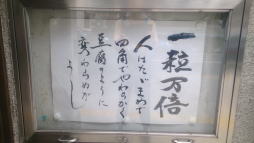 一粒万倍
人はただまめで
四角でやわらかく
豆腐のように
変わらぬが
よし